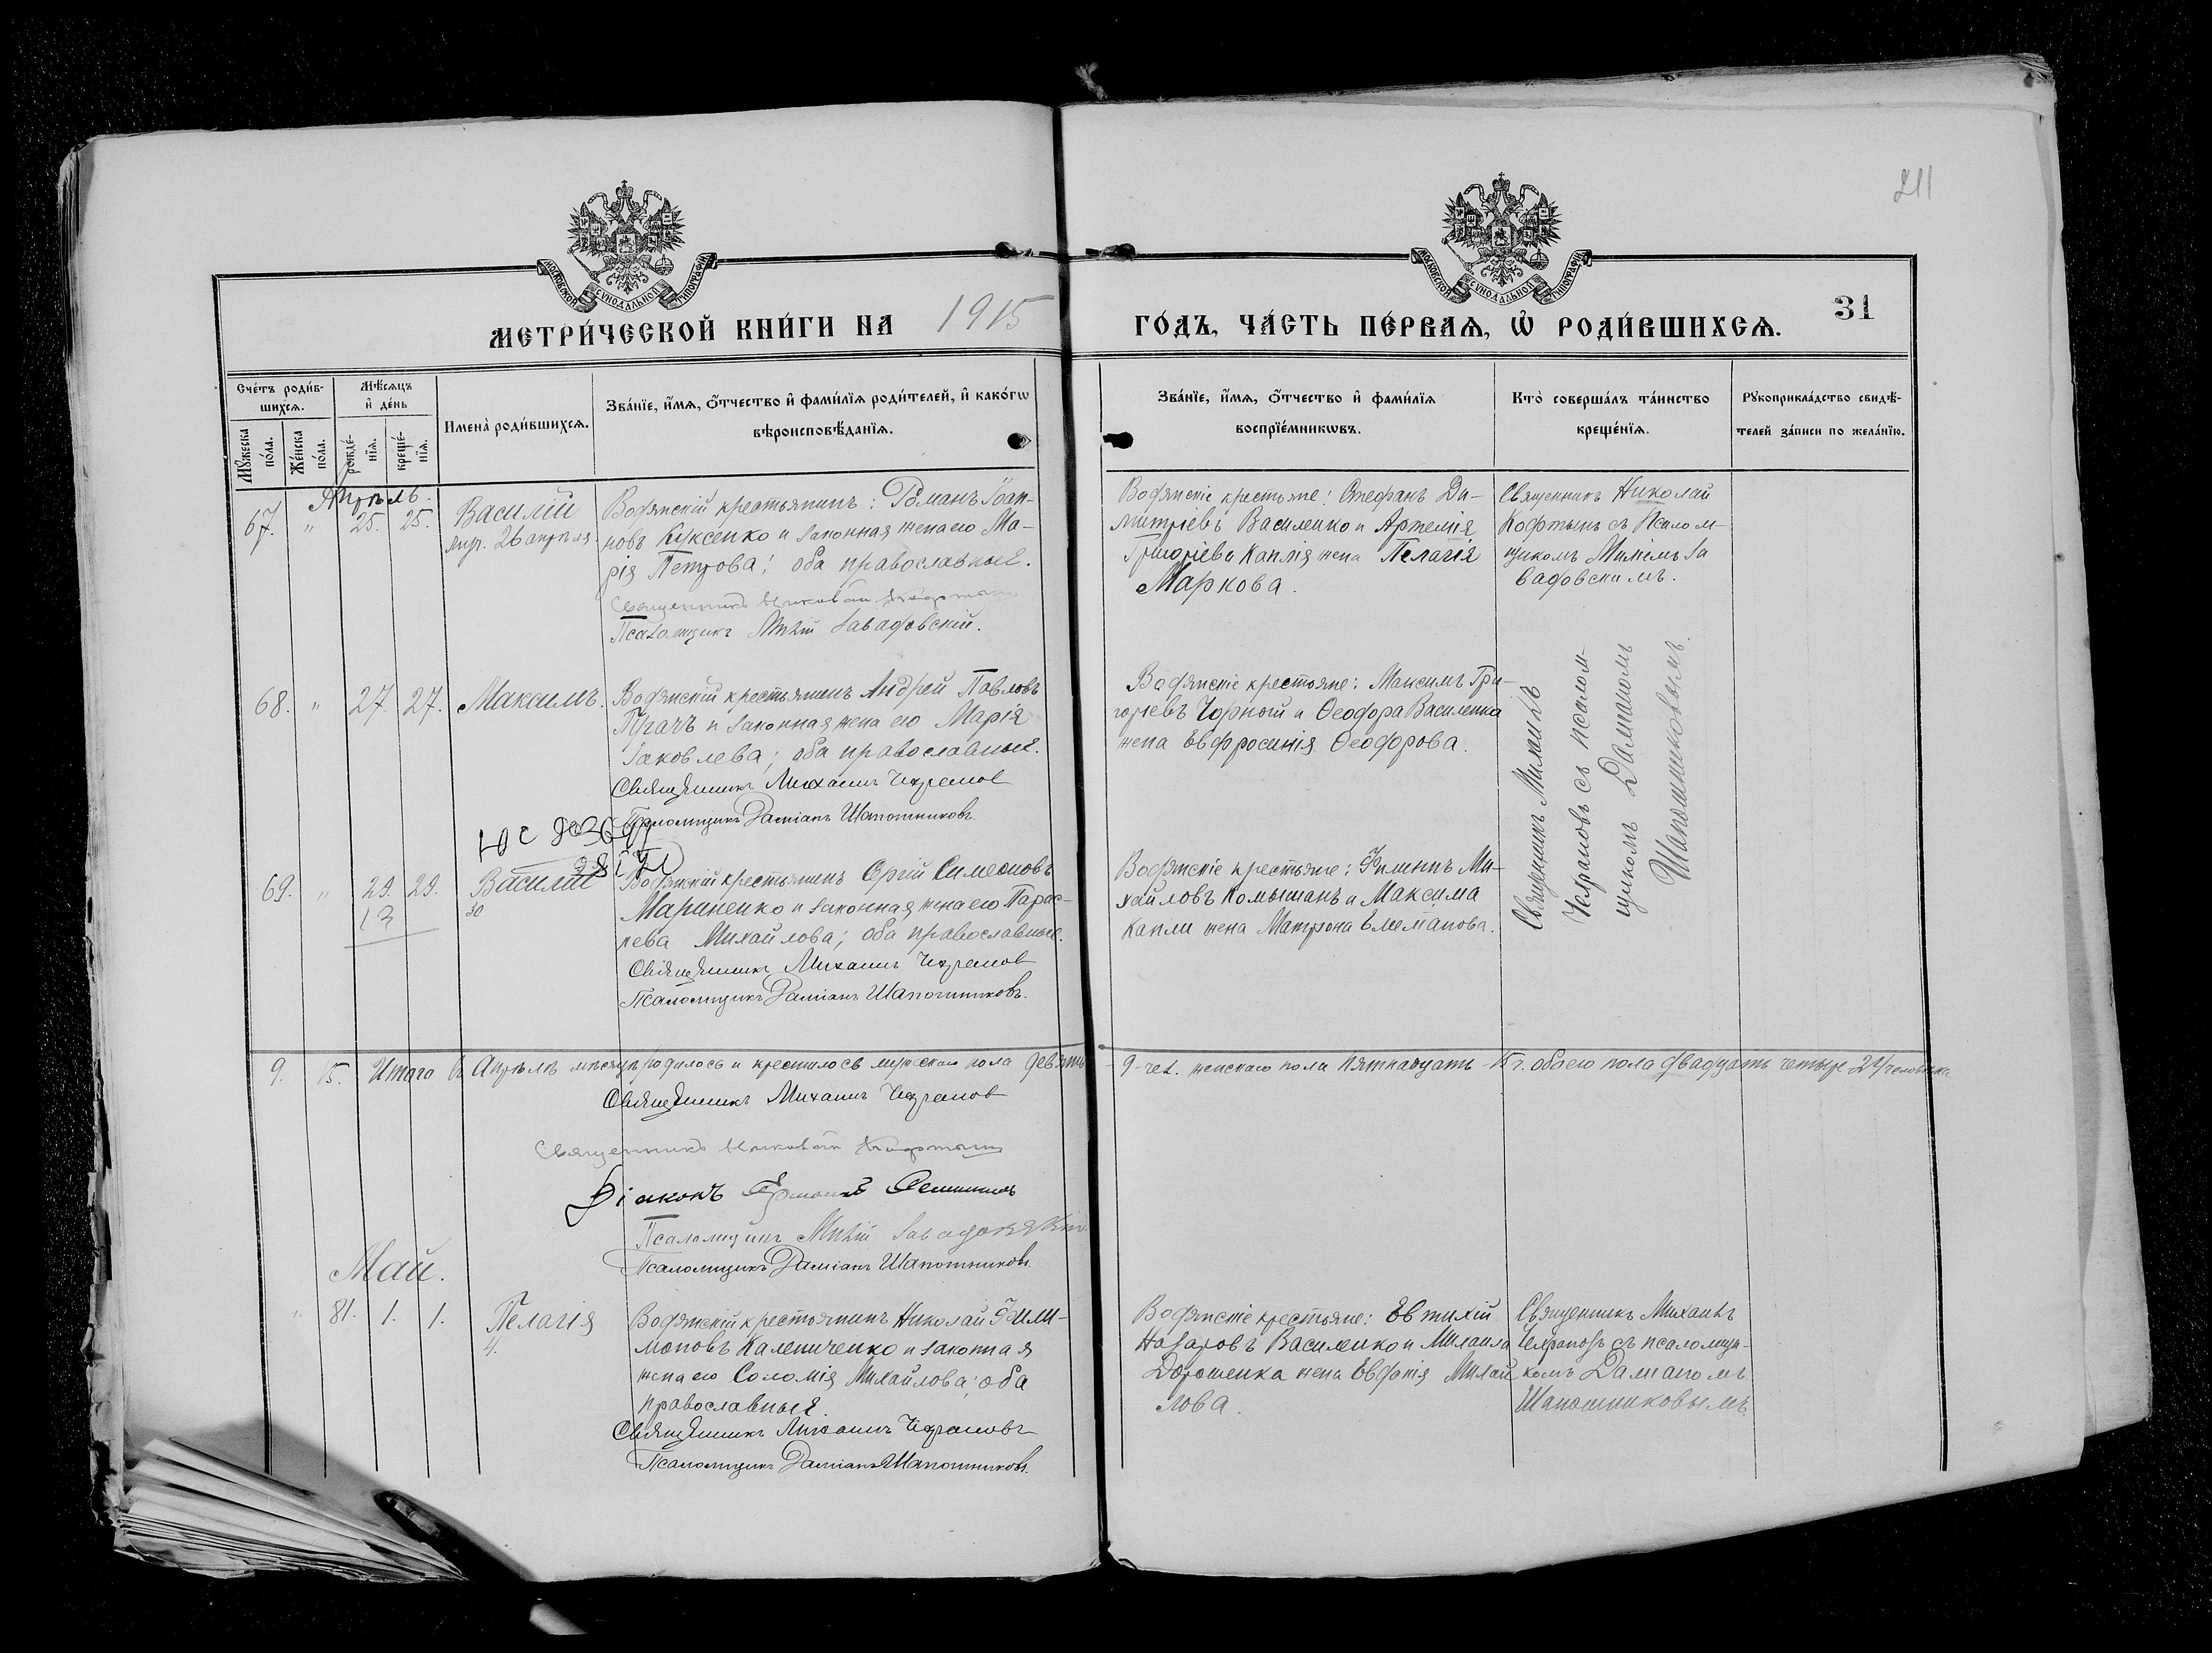 211
МОСКОВСКОЙ СѴНОДАЛЬНОЙ ТИПОГРАФІИ
МОСКОВСКОЙ СѴНОДАЛЬНОЙ ТИПОГРАФІИ
МЕТРИ́ЧЕСКОЙ КНИ́ГИ НА 1915 ГО́ДЪ, ЧА́СТЬ ПЕ́РВАѦ, Ѽ РОДИ́ВШИХСѦ. 31
Сче́тъ роди́в-
шихсѧ.
Мѣ́сѧцъ
и҆ де́нь
Мꙋ́жеска
по́ла.
Же́нска
по́ла.
рожде́-
нїѧ.
креще́-
нїѧ.
Имена̀ роди́вшихсѧ.
Зва́нїе, и҆́мѧ, ѻ҆́тчество и҆ фами́лїѧ роди́телей, и҆ како́гѡ
вѣроисповѣ́данїѧ.
Зва́нїе, и҆́мѧ, ѻ҆́тчество и҆ фами́лїѧ
воспрїе́мникѡвъ.
Кто̀ соверша́лъ та́инство
креще́нїѧ.
Рꙋкоприкла́дство свидѣ́-
телей за́писи по жела́нїю.
Апрѣль.
67. " 25. 25. Василій
26 апрѣля
Водянскій крестьянинъ: Романъ Іоан-
новъ Куксенко и законная жена его Ма-
рія Петрова; оба православные.
Священникъ Николай Кофтынъ
Псаломщикъ Завадовскій.
Водянскіе крестьяне: Стефанъ Ди-
митріевъ Василенко и Артемія
Григоріева Капля жена Пелагія
Маркова.
Священникъ Николай
Кофтынъ съ Псалом-
щикомъ За
вадовскимъ.
68. " 27. 27. Максимъ.
Водянскій крестьянинъ Андрей Павловъ
Пугачъ и законная жена его Марія
Іаковлева; оба православные.
Священникъ Михаилъ Чехрановъ
Псаломщикъ Даміанъ Шапошниковъ.
Водянскіе крестьяне: Максимъ Гри-
горіевъ Чорный и Ѳеодора Василенка
жена Евфросинія Ѳеодорова.
Священникъ Михаилъ
Чехрановъ съ псалом-
щикомъ Даміаномъ
Шапошниковымъ.
69. " 29. 29. Василій
13
30
Водянскій крестьянинъ Сергій Симеоновъ
Мариненко и законная жена его Парас-
кева Михайлова; оба православные.
Священникъ Михаилъ Чехрановъ
Псаломщикъ Даміанъ Шапошниковъ.
Водянскіе крестьяне: Филиппъ Ми-
хайловъ Комышанъ и Максима
Капли жена Матрона
9. 15. Итого въ Апрѣлѣ мѣсяцѣ родилось и крестилось мужескаго пола девять - 9 чел. женскаго пола пятнадцать - 15 ч. обоего пола двадцать четыре 24 человѣка
Священникъ Михаилъ Чехрановъ
Священникъ Николай Кофтынъ
Діаконъ
Псаломщикъ Завадовскій.
Псаломщикъ Даміанъ Шапошниковъ.
Май.
" 81. 1. 1. Пелагія
4.
Водянскій крестьянинъ Николай Фили-
моновъ Калениченко и законная
жена его Соломія Михайлова; оба
православные.
Священникъ Михаилъ Чехрановъ
Псаломщикъ Даміанъ Шапошниковъ.
Водянскіе крестьяне: Евтихій
Назаровъ Василенко и Михаила
Дорошенка жена Евфимія Михай
лова.
Священникъ Михаилъ
Чехрановъ съ псаломщи-
комъ Даміаномъ
Шапошниковымъ.